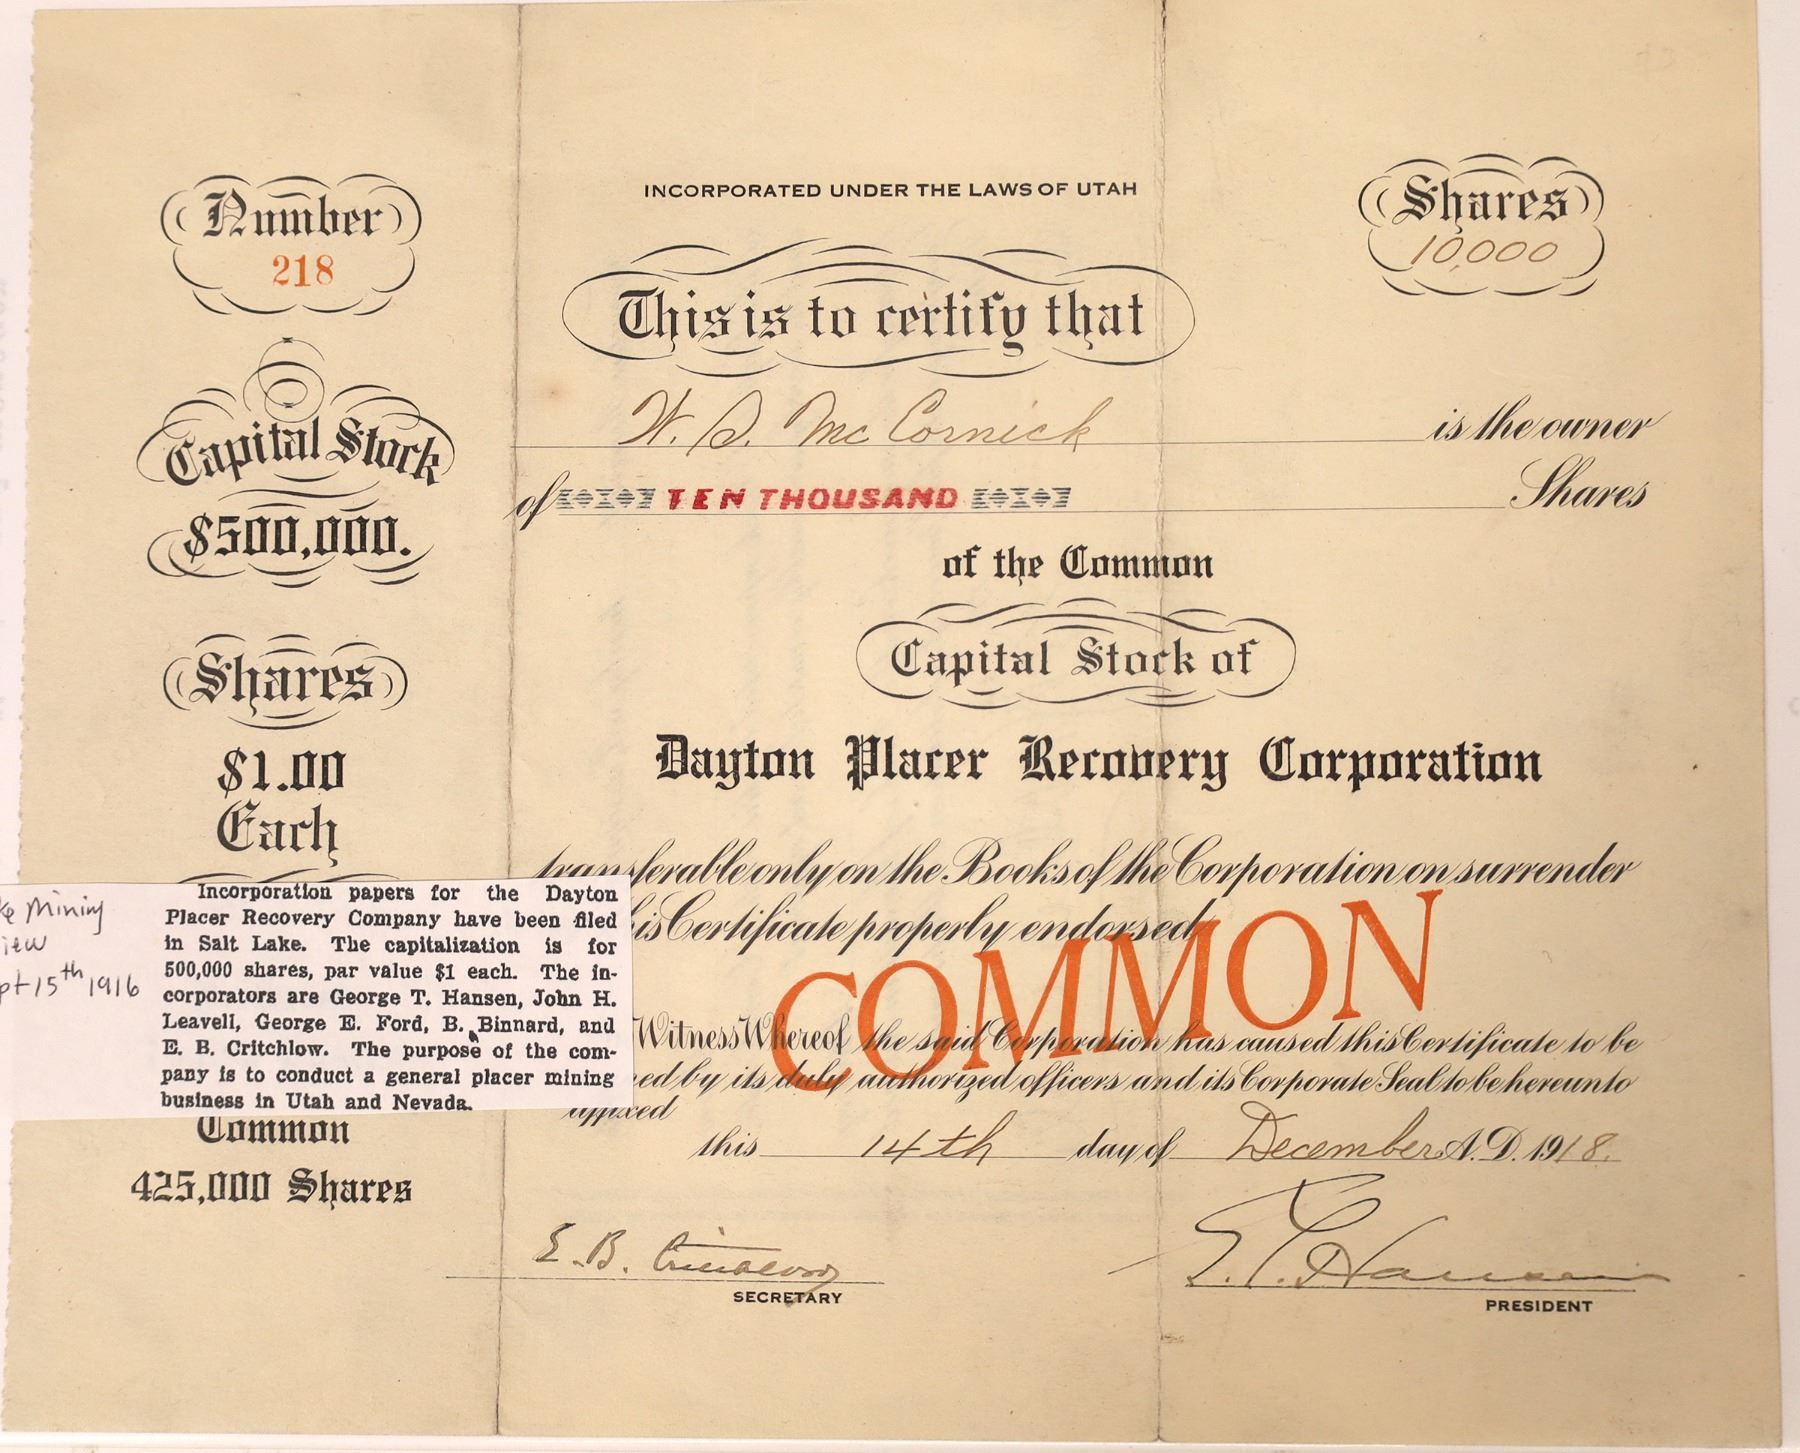 INCORPORATED UNDER THE LAWS OF UTAH
Number
218
Shares
10,000
This is to certify that
Capital Stock
$500,000.
W. S. McCornick is the owner
of TEN THOUSAND Shares
of the Common
Capital Stock of
Shares
$1.00
Each
Dayton Placer Recovery Corporation
transferable only on the Books of the Corporation on surrender
is Certificate properly endorsed
COMMON
Witness Whereof the said Corporation has caused this Certificate to be
ed by its duly authorized officers and its Corporate Seal to be hereunto
affixed
this 14th day of December A.D. 1918.
Mining
iew
pt 15th 1916
Incorporation papers for the Dayton
Placer Recovery Company have been filed
in Salt Lake. The capitalization is for
500,000 shares, par value $1 each. The in-
corporators are George T. Hansen, John H.
Leavell, George E. Ford, B. Binnard, and
E. B. Critchlow. The purpose of the com-
pany is to conduct a general placer mining
business in Utah and Nevada.
Common
425,000 Shares
E. B. Critchlow
SECRETARY
G. T. Hansen
PRESIDENT